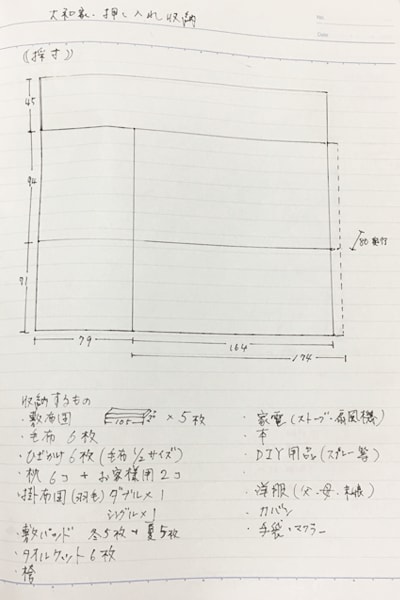 大和家・押し入れ収納
No.
Date
((採寸))
45
94
80 奥行
71
79
164
174
収納するもの
・敷布団 105 × 5枚
・毛布 6枚
・ひざかけ 6枚 (毛布 1/2 サイズ)
・枕 6コ + お客様用 2コ
・掛布団 (羽毛) ダブル×1
シングル×1
・敷パッド 冬5枚 + 夏5枚
・タオルケット 6枚
・家電 (ストーブ・扇風機)
・本
・DIY用品 (スプレー等)
・洋服 (父・母・
・カバン
・手袋・マフラー